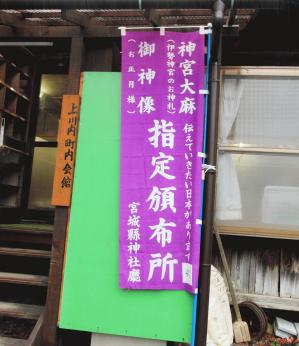 神宮大麻
(伊勢神宮のお神札)
御神像
(お正月様)
伝えていきたい日本があります
指定頒布所
宮城縣神社廳
上川内町内会館